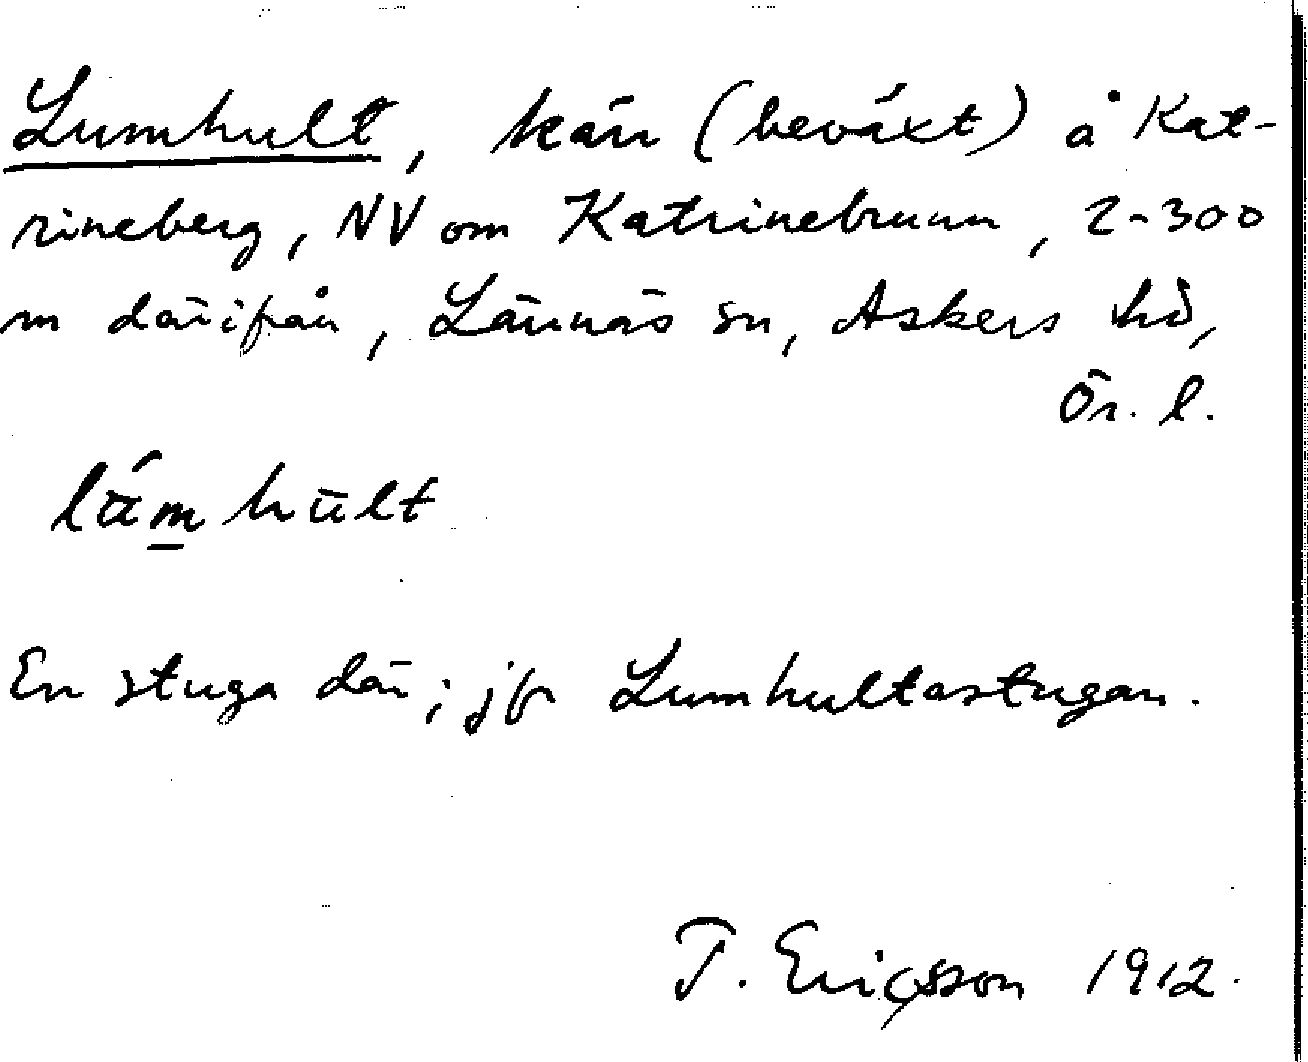 Lumhult, kärr (beväxt) å Kat-
rineberg, NV om Katrinebrunn, 2-300
m därifrån, Lännäs sn, Askers hd,
Ör. l.
lúmhult
En stuga där; jfr Lumhultastugan.
T. Ericsson 1912.